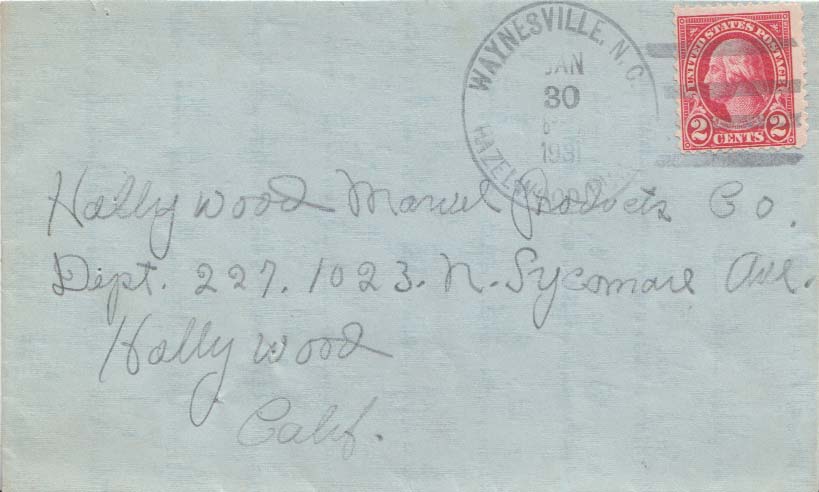 WAYNESVILLE, N.C.
JAN
30
1931
UNITED STATES POSTAGE
2 CENTS 2
Hollywood Marvel Products Co.
Dept. 227. 1023. N. Sycomare Ave.
Hollywood
Calif.